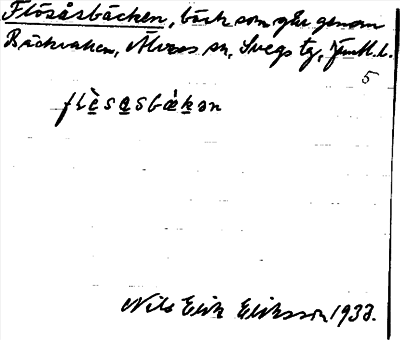 Flösåsbäcken, bäck som går genom
Bäckvaken, Älvros sn, Svegs tg, Jämtl. l.
5
flèsasbækən
Nils Erik Eriksson 1933.